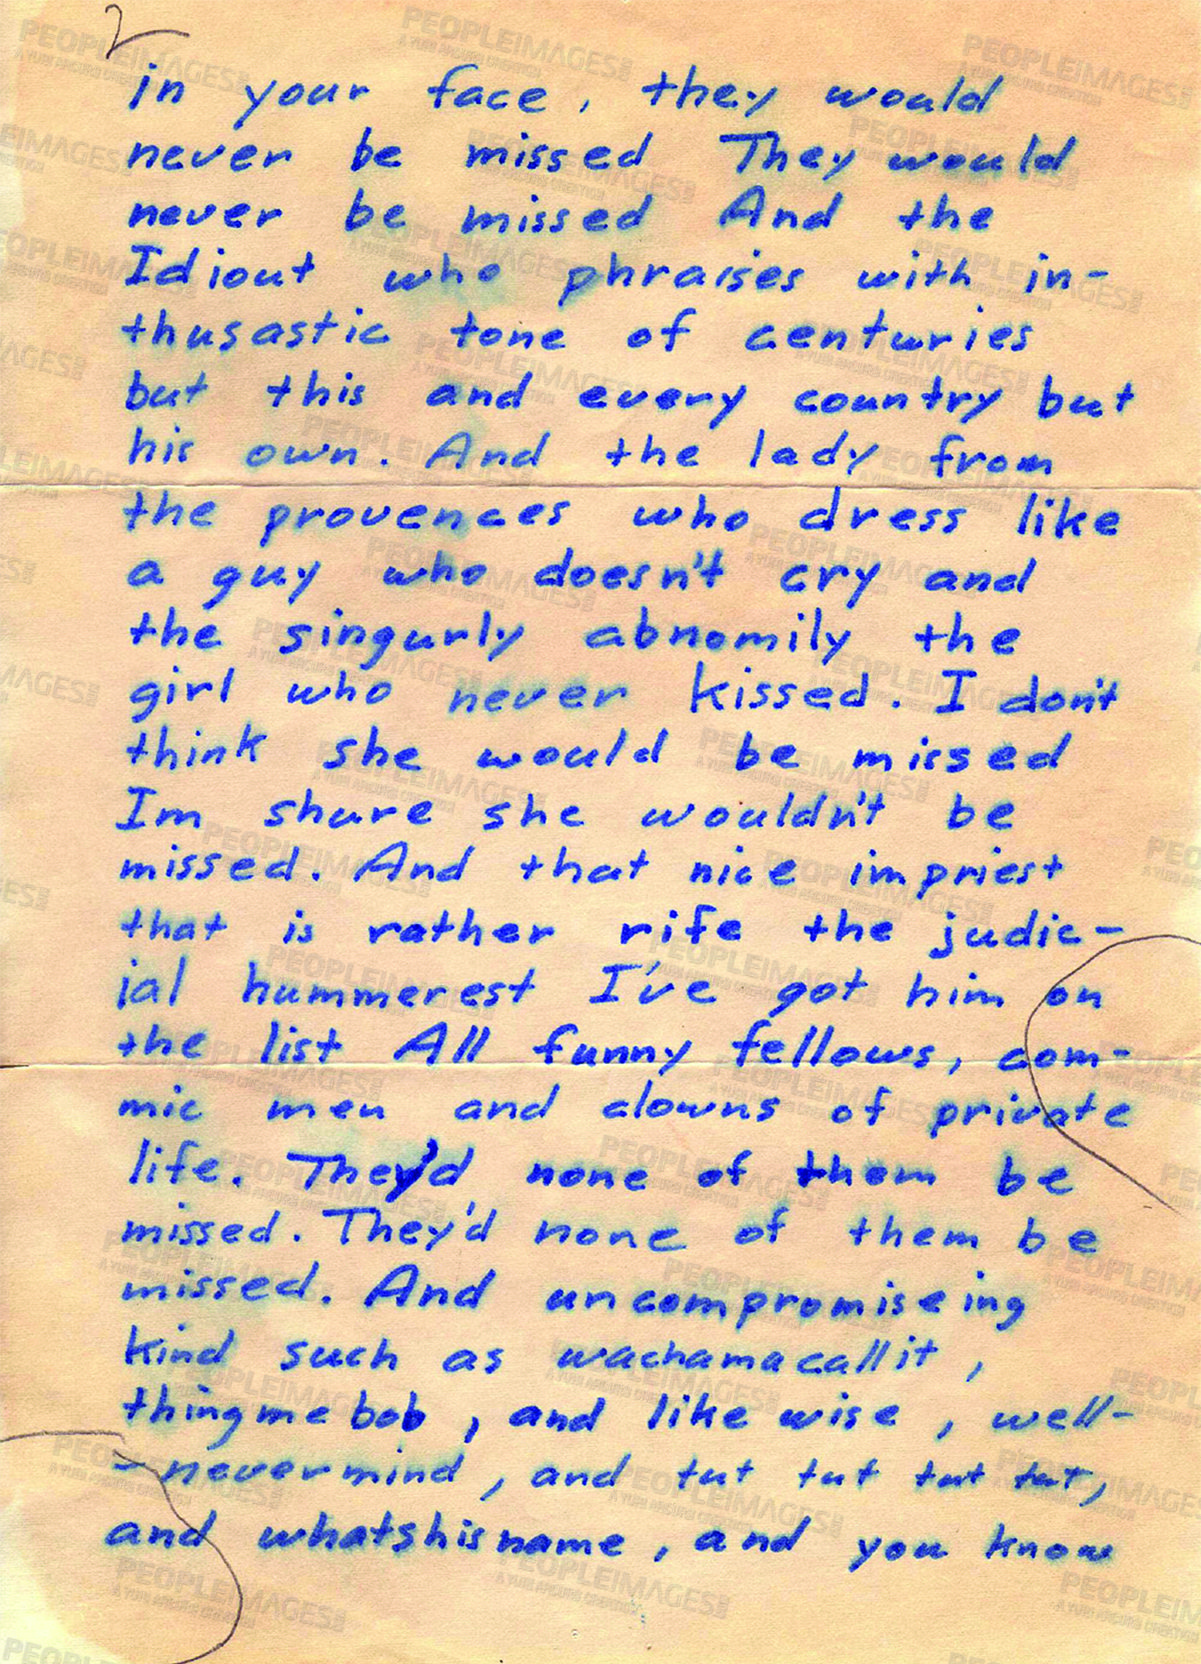 2
in your face, they would
never be missed They would
never be missed And the
Idiout who phraises with in-
thusastic tone of centuries
but this and every country but
his own. And the lady from
the provences who dress like
a guy who doesn't cry and
the singurly abnomily the
girl who never kissed. I don't
think she would be missed
Im shure she wouldn't be
missed. And that nice impriest
that is rather rife the judic-
ial hummerest I've got him on
the list All funny fellows, com-
mic men and clowns of private
life. They'd none of them be
missed. They'd none of them be
missed. And uncompromiseing
kind such as wachamacallit,
thingmebob, and likewise, well-
-nevermind, and tut tut tut tut,
and whatshisname, and you know
PEOPLEIMAGES
A YURI ARCURS CREATION